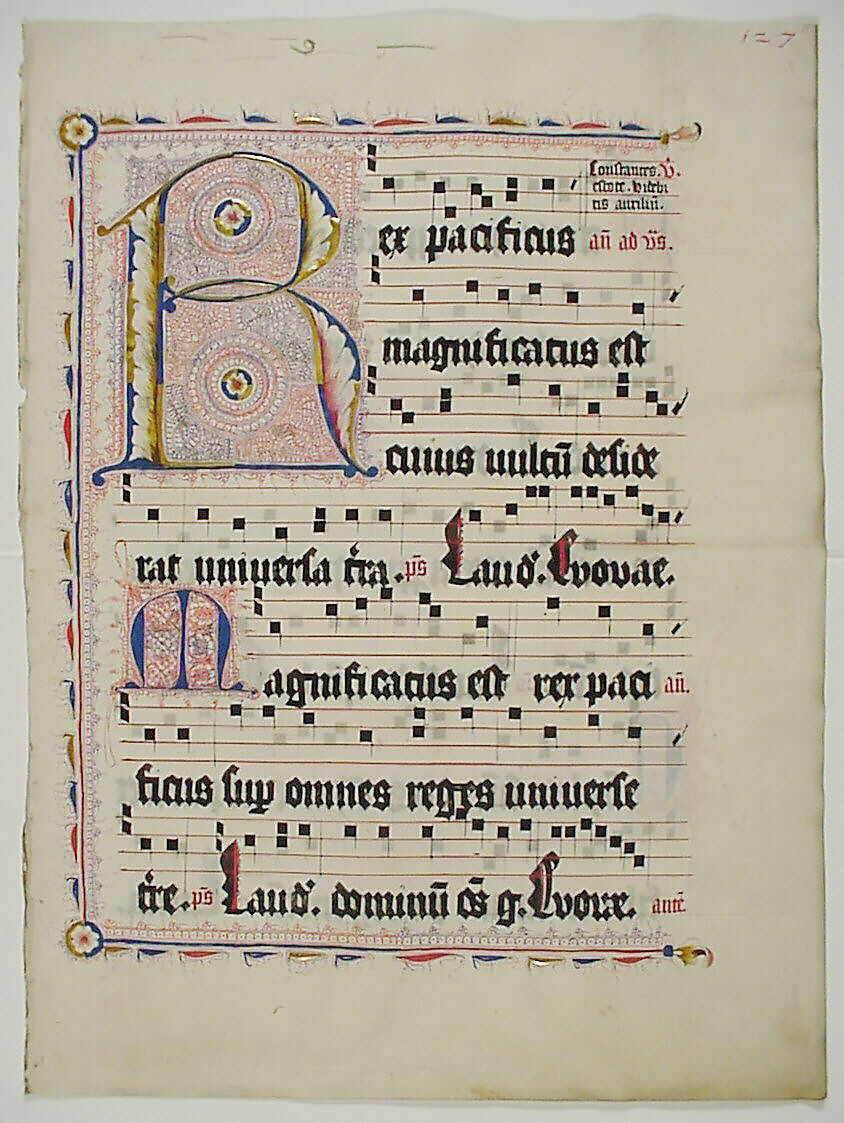 127
Constantes. V̄.
estote. videbi
tis auxiliū.
Rex pacificus añ ad vs̄.
magnificatus est
cuius uultū deside
rat uniuersa t̄ra. ps̄ Laud'. Evovae.
Magnificatus est rex paci añ.
ficus sup omnes reges uniuerse
t̄re. ps̄ Laud'. dominū ōs g. Evovae. ante